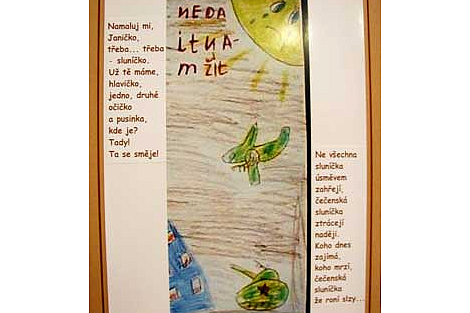 Namaluj mi,
Janičko,
třeba... třeba
- sluníčko.
Už tě máme,
hlavičko,
jedno, druhé
očičko
a pusinka,
kde je?
Tady!
Ta se směje!
NEDA
itNA-
m žít
Ne všechna
sluníčka
úsměvem
zahřejí,
čečenská
sluníčka
ztrácejí
naději.
Koho dnes
zajímá,
koho mrzí,
čečenská
sluníčka
že roní slzy...